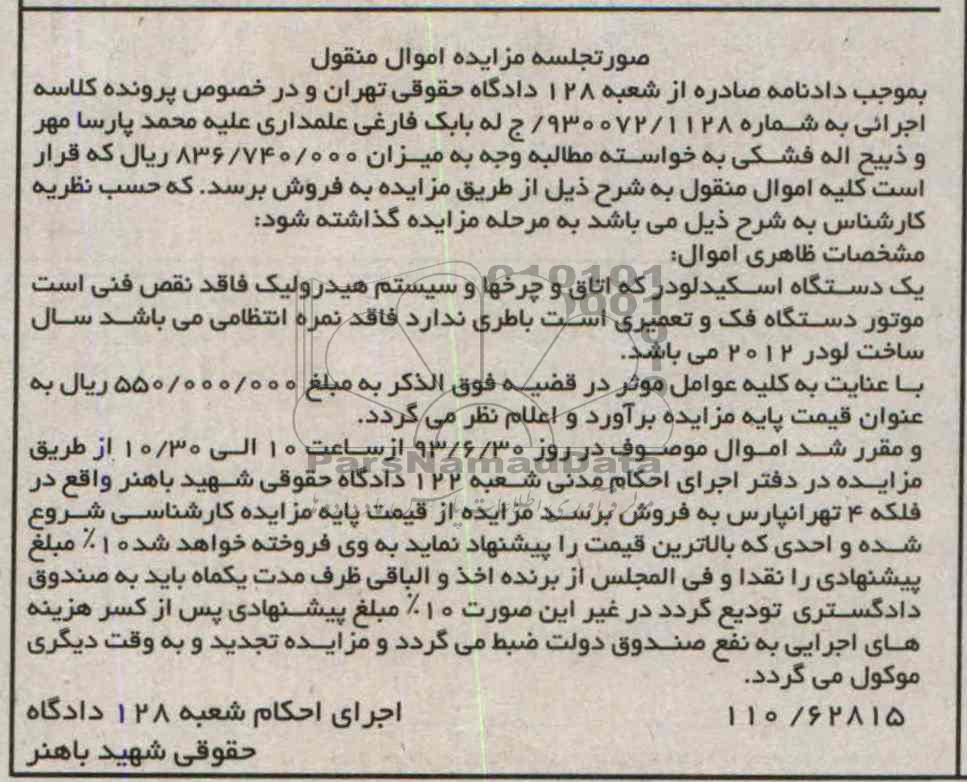 صورتجلسه مزایده اموال منقول
بموجب دادنامه صادره از شعبه ۱۲۸ دادگاه حقوقی تهران و در خصوص پرونده کلاسه
اجرائی به شماره ۹۳۰۰۷۲/۱۱۲۸/ ج له بابک فارغی علمداری علیه محمد پارسا مهر
و ذبیح اله فشکی به خواسته مطالبه وجه به میزان ۸۳۶/۷۴۰/۰۰۰ ریال که قرار
است کلیه اموال منقول به شرح ذیل از طریق مزایده به فروش برسد. که حسب نظریه
کارشناس به شرح ذیل می باشد به مرحله مزایده گذاشته شود:
مشخصات ظاهری اموال:
یک دستگاه اسکیدلودر که اتاق و چرخها و سیستم هیدرولیک فاقد نقص فنی است
موتور دستگاه فک و تعمیری است باطری ندارد فاقد نمره انتظامی می باشد سال
ساخت لودر ۲۰۱۲ می باشد.
با عنایت به کلیه عوامل موثر در قضیه فوق الذکر به مبلغ ۵۵۰/۰۰۰/۰۰۰ ریال به
عنوان قیمت پایه مزایده برآورد و اعلام نظر می گردد.
و مقرر شد اموال موصوف در روز ۹۳/۶/۳۰ از ساعت ۱۰ الی ۱۰/۳۰ از طریق
مزایده در دفتر اجرای احکام مدنی شعبه ۱۲۲ دادگاه حقوقی شهید باهنر واقع در
فلکه ۴ تهرانپارس به فروش برسد مزایده از قیمت پایه مزایده کارشناسی شروع
شده و احدی که بالاترین قیمت را پیشنهاد نماید به وی فروخته خواهد شد ۱۰٪ مبلغ
پیشنهادی را نقدا و فی المجلس از برنده اخذ و الباقی ظرف مدت یکماه باید به صندوق
دادگستری تودیع گردد در غیر این صورت ۱۰٪ مبلغ پیشنهادی پس از کسر هزینه
های اجرایی به نفع صندوق دولت ضبط می گردد و مزایده تجدید و به وقت دیگری
موکول می گردد.
۱۱۰/۶۲۸۱۵ اجرای احکام شعبه ۱۲۸ دادگاه
حقوقی شهید باهنر
ParsNamadData